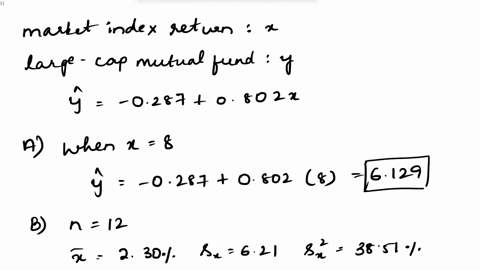 market index return : x
large-cap mutual fund : y
ŷ = -0.287 + 0.802x
A) when x = 8
ŷ = -0.287 + 0.802 (8) = 6.129
B) n = 12
x̄ = 2.30% s_x = 6.21 s_x² = 38.51%